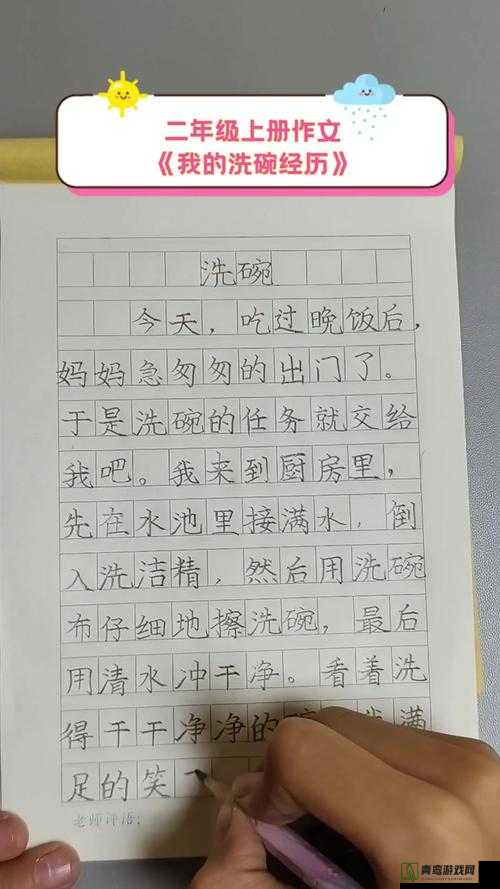 二年级上册作文
《我的洗碗经历》
洗碗
今天，吃过晚饭后，
妈妈急匆匆的出门了。
于是洗碗的任务就交给
我吧。我来到厨房里，
先在水池里接满水，倒
入洗洁精，然后用洗碗
布仔细地擦洗碗，最后
用清水冲干净。看着洗
得干干净净的 满
足的笑
老师评语：
青鸟游戏网